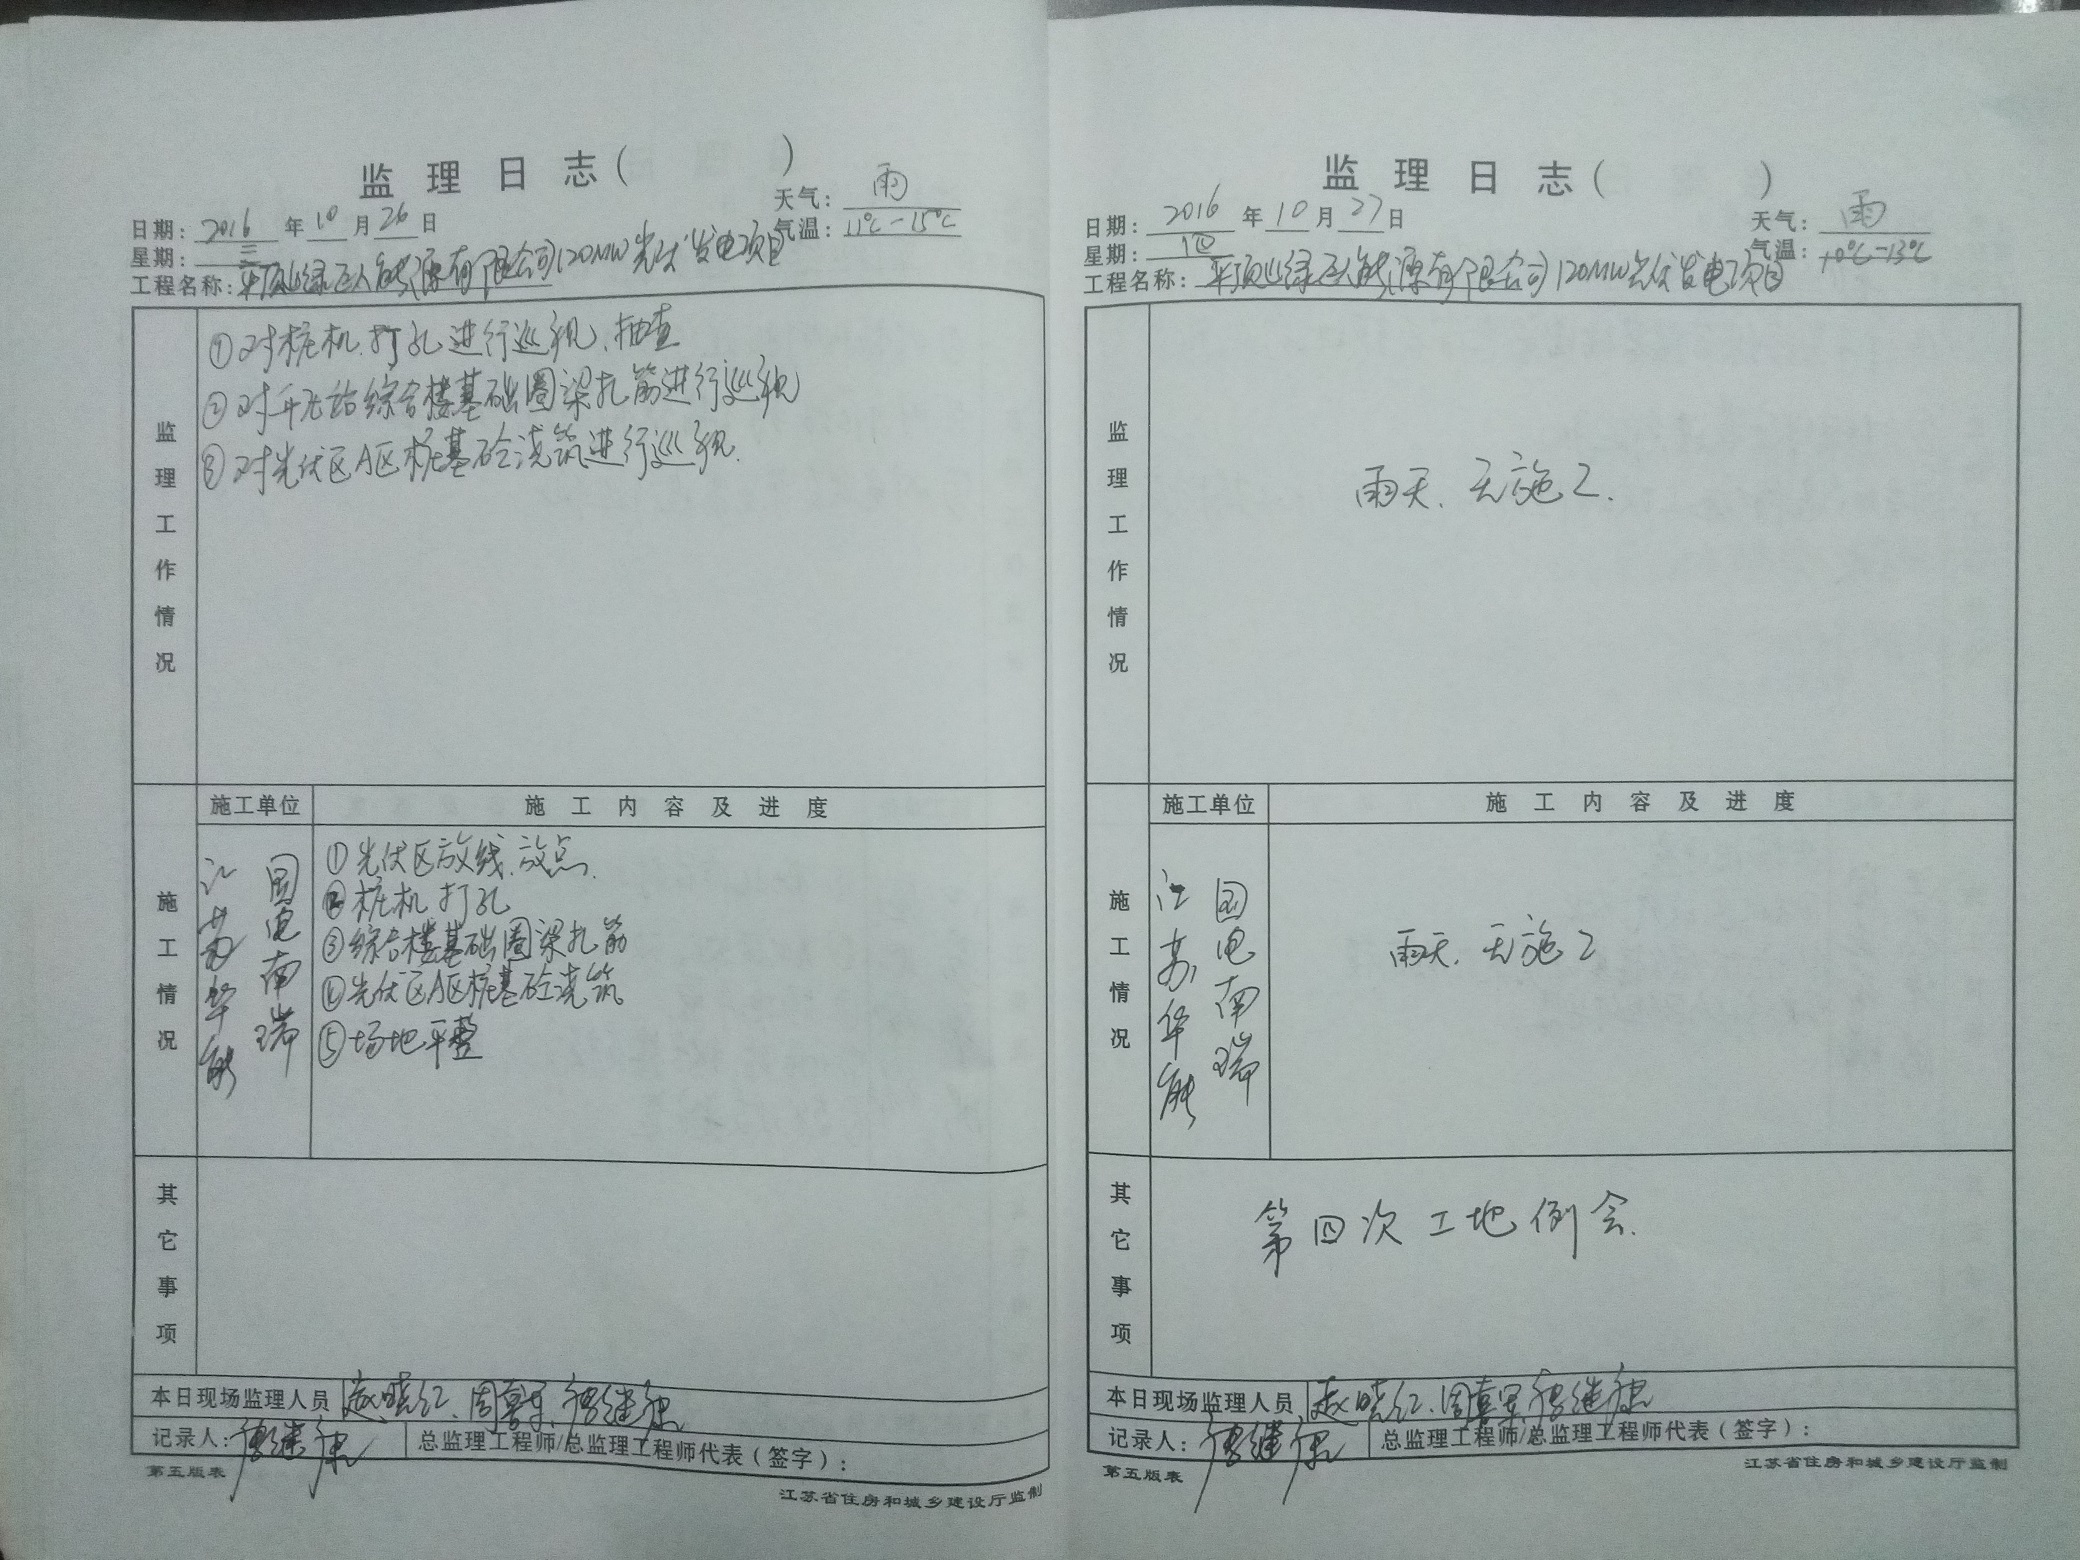 监理日志（ ）
天气：雨
日期：2016年10月26日
气温：11℃-15℃
星期：三
工程名称：平顶山绿巨人能源有限公司120MW光伏发电项目
监理工作情况
①对桩机打孔进行巡视、抽查
②对升压站综合楼基础圈梁扎筋进行巡视
③对光伏区A区桩基砼浇筑进行巡视.
施工情况
施工单位 施工内容及进度
江苏华能
国电南瑞
①光伏区放线.放点.
②桩机打孔
③综合楼基础圈梁扎筋
④光伏区A区桩基砼浇筑
⑤场地平整
其它事项
本日现场监理人员 赵晓红、周喜军、
记录人： 总监理工程师/总监理工程师代表（签字）：
第五版表 江苏省住房和城乡建设厅监制
监理日志（ ）
天气：雨
日期：2016年10月27日
气温：10℃-13℃
星期：四
工程名称：平顶山绿巨人能源有限公司120MW光伏发电项目
监理工作情况
雨天.无施工.
施工情况
施工单位 施工内容及进度
江苏华能
国电南瑞
雨天.无施工
其它事项
第四次工地例会.
本日现场监理人员 赵晓红、周喜军、
记录人： 总监理工程师/总监理工程师代表（签字）：
第五版表 江苏省住房和城乡建设厅监制